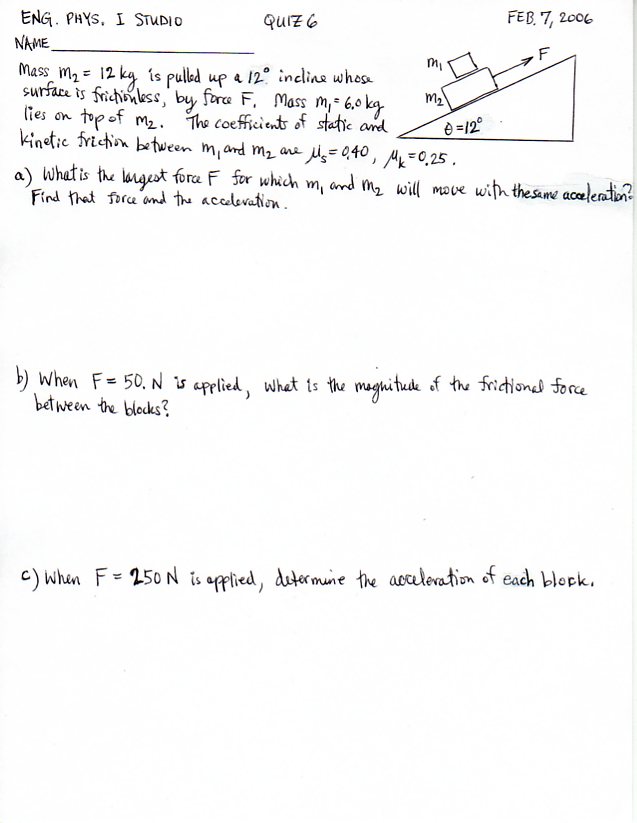 ENG. PHYS. I STUDIO QUIZ 6 FEB. 7, 2006
NAME
Mass m₂ = 12 kg is pulled up a 12° incline whose
surface is frictionless, by force F. Mass m₁ = 6.0 kg
lies on top of m₂. The coefficients of static and
kinetic friction between m₁ and m₂ are μs = 0.40, μk = 0.25.
m₁
F
m₂
θ = 12°
a) What is the largest force F for which m₁ and m₂ will move with the same acceleration?
Find that force and the acceleration.
b) When F = 50. N is applied, what is the magnitude of the frictional force
between the blocks?
c) When F = 250 N is applied, determine the acceleration of each block.